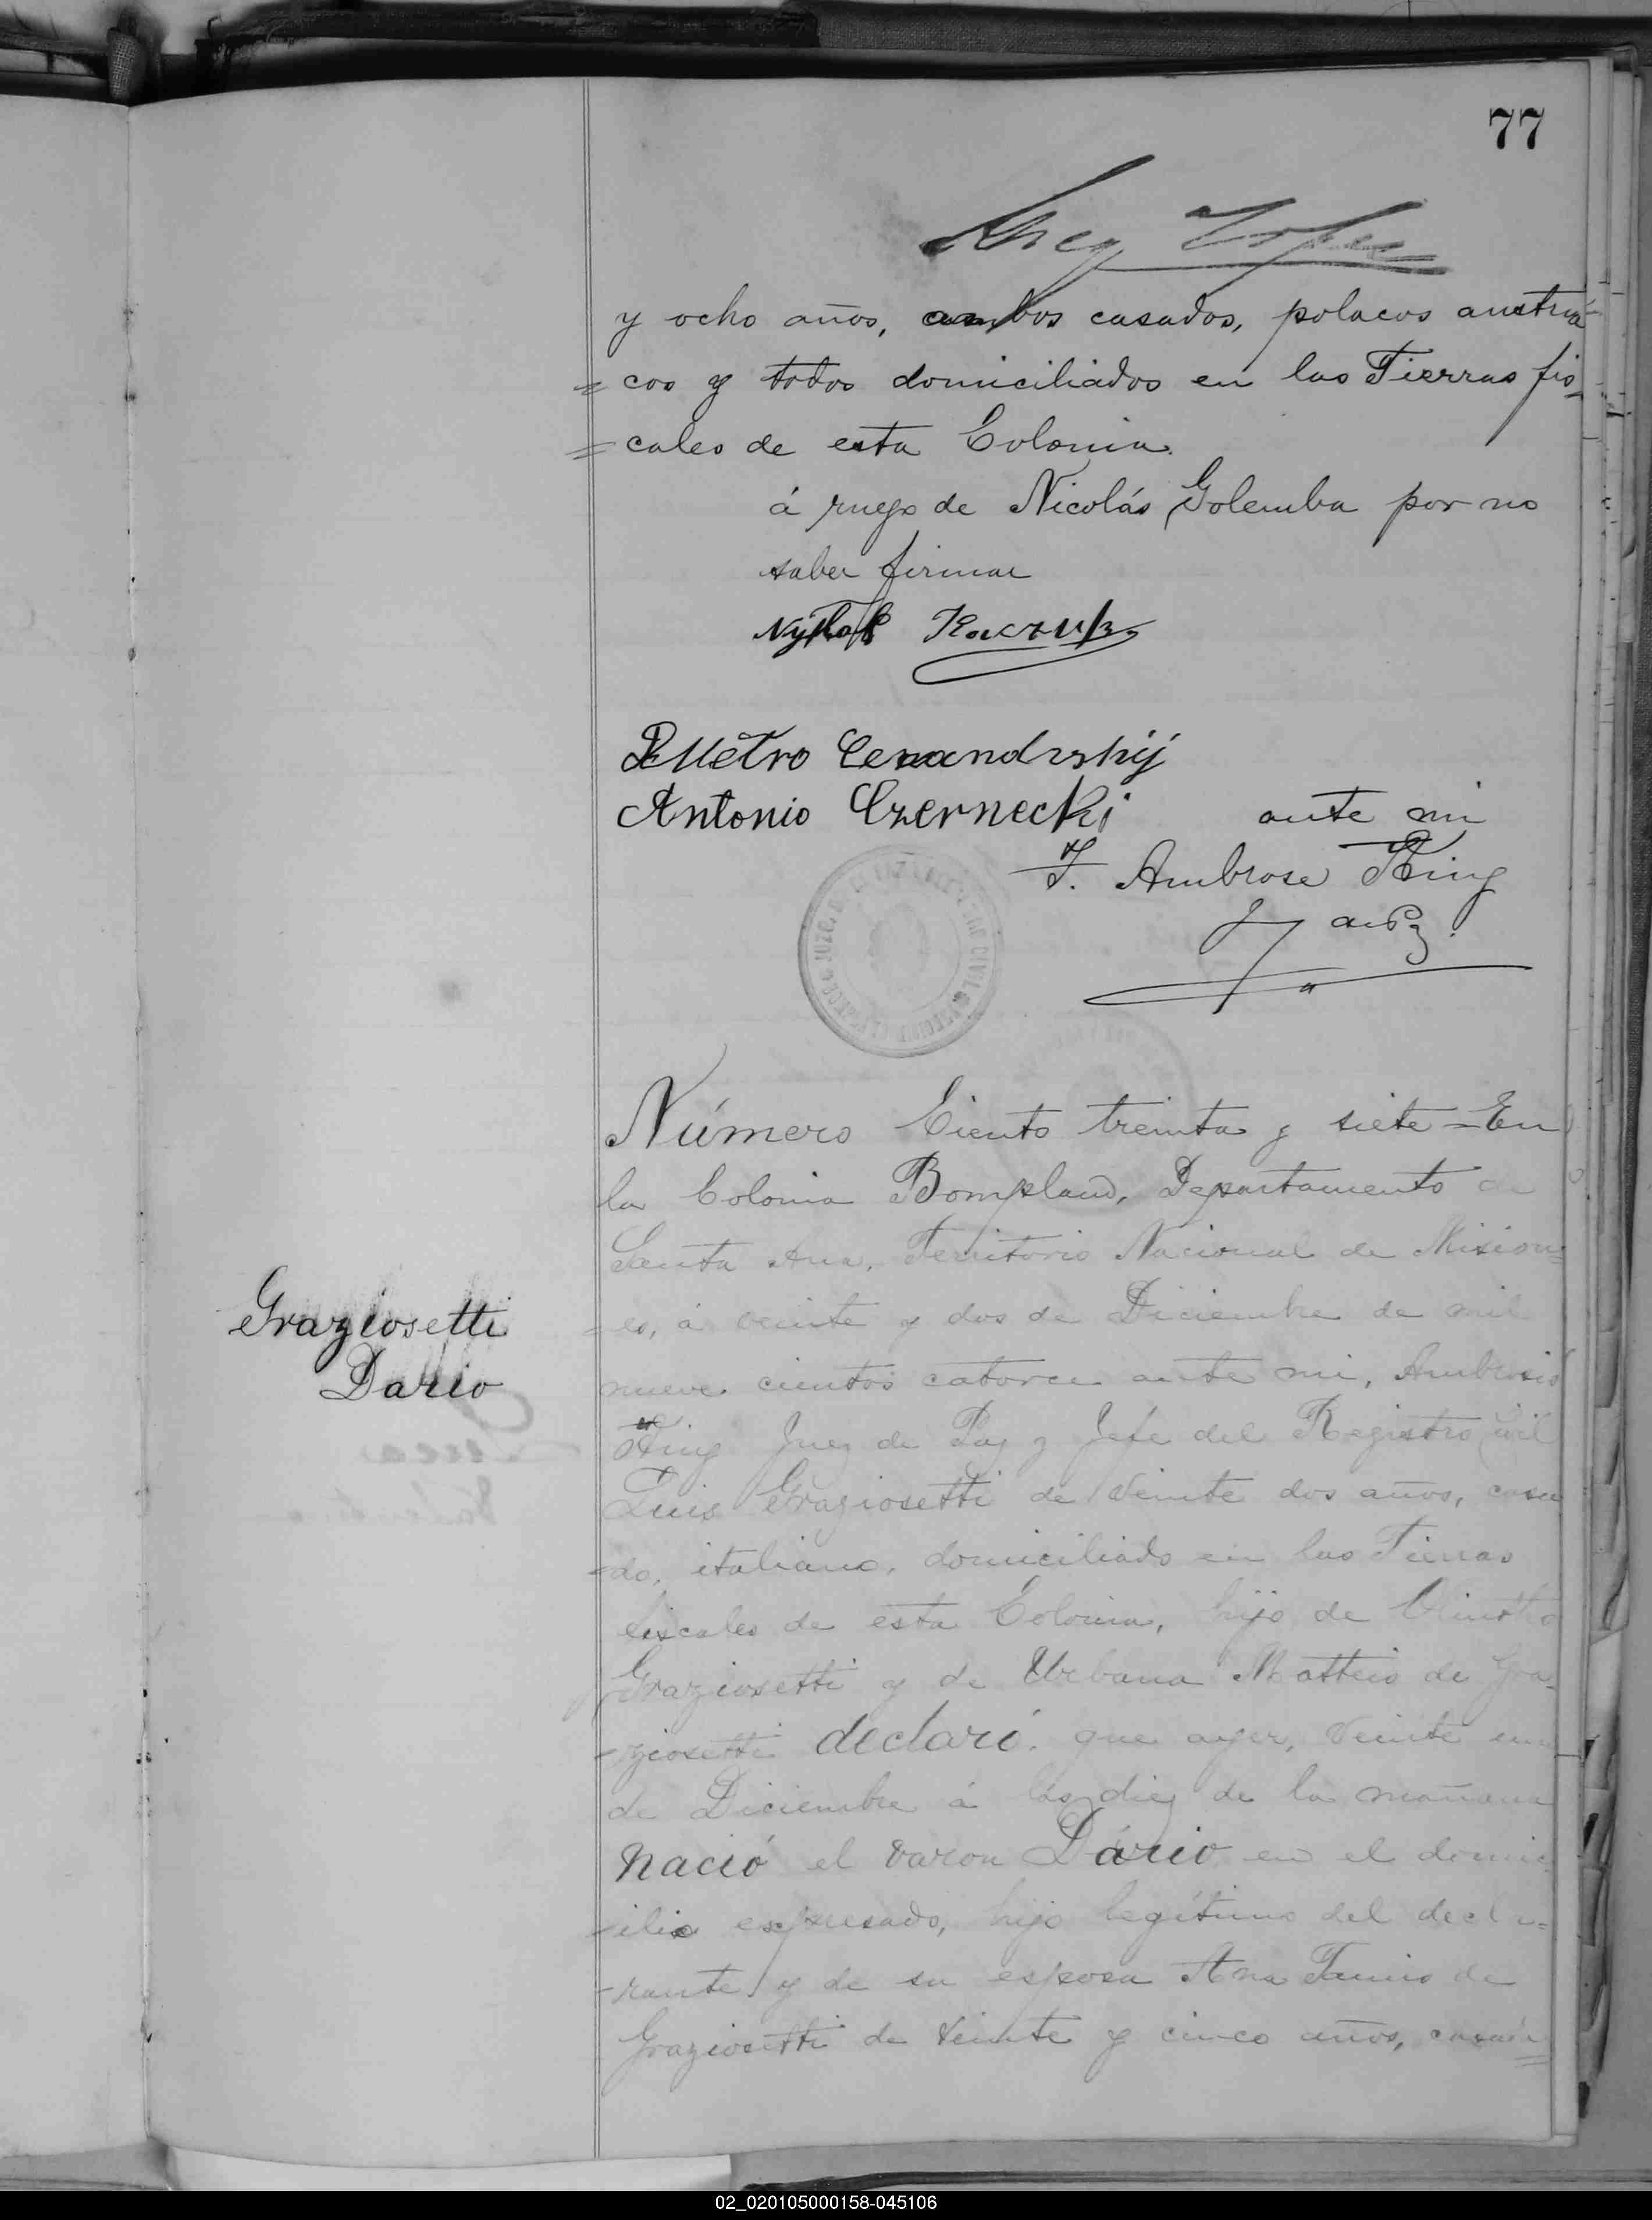 77
y ocho años, ambos casados, polacos austria
= cos y todos domiciliados en las Tierras fis
= cales de esta Colonia.
á ruego de Nicolás Golemba por no
saber firmar
Kaczuk
Dmetro
Antonio Czernecki ante mi
F. Ambrose King
J de Pz.
Número Ciento treinta y siete = En
la Colonia Bompland, Departamento de
Santa Ana, Territorio Nacional de Mision=
=es, á veinte y dos de Diciembre de mil
nueve cientos catorce ante mi, Ambrosio
Graziosetti
Dario
King Juez de Paz y Jefe del Registro Civil
Luis Graziosetti de veinte dos años, casa
=do, italiano, domiciliado en las Tierras
fiscales de esta Colonia, hijo de
Graziosetti y de Urbana Matteio de Gra-
-ziosetti declaró: que ayer, veinte un
de Diciembre á las diez de la mañana
nació el varon Dário en el domic-
-ilio expresado, hijo legítimo del decla=
-rante y de su esposa Ana de
Graziosetti de veinte y cinco años, casada
02_020105000158-045106